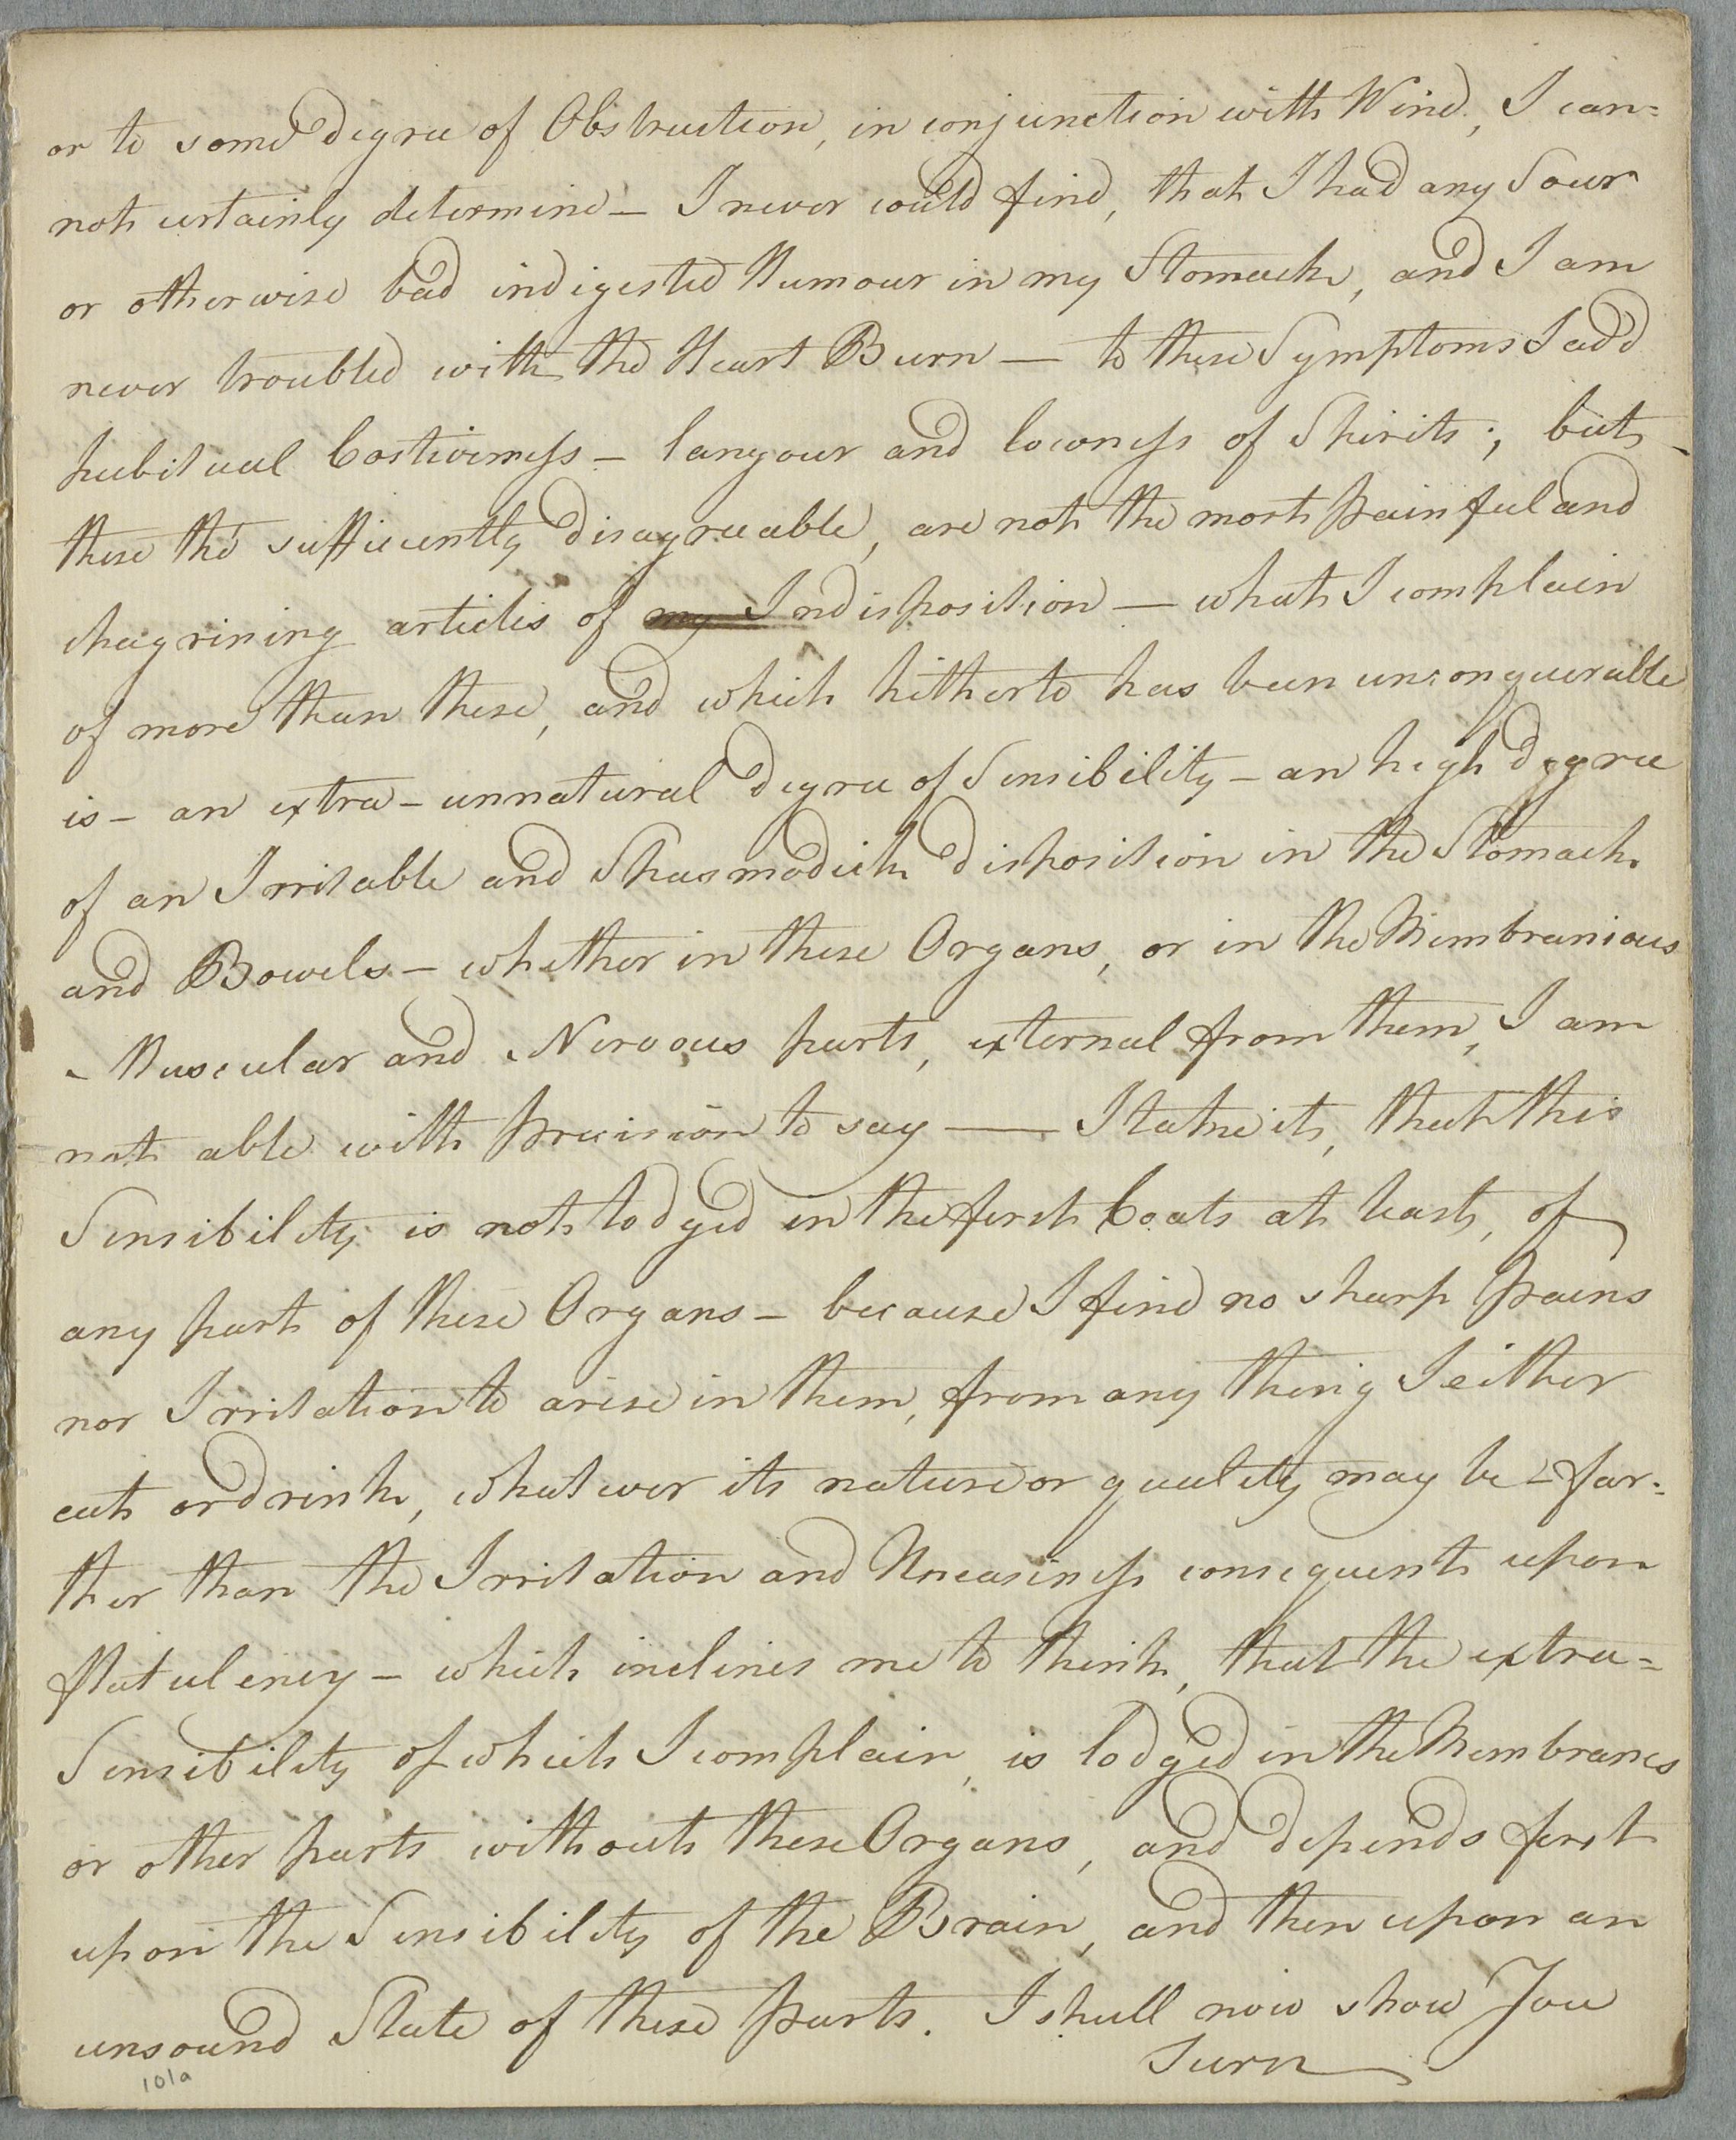 or to some degree of Obstruction, in conjunction with Wind, I can=
not certainly determine – I never could find, that I had any Sour
or otherwise bad indigested Humour in my Stomach, and I am
never troubled with the Heart Burn — to these Symptoms I add
habitual Costiveness – langour and lowness of Spirits; but –
these tho' sufficiently disagreeable, are not the most painful and
chagrining articles of my Indisposition — what I complain
of more than these, and which hitherto has been unconquerable
is – an extra – unnatural degree of Sensibility – an high degree
of an Irritable and Spasmodick disposition in the Stomach
and Bowels – whether in these Organs, or in the Membranious
Muscular and Nervous parts, external from them, I am
not able with precision to say —— I take it, that this
Sensibility is not lodged in the first Coats at least, of
any part of these Organs – because I find no sharp pains
nor Irritation to arise in them, from any thing I either
eat or drink, whatever its nature or quality may be – far=
ther than the Irritation and Uneasiness consequent upon
flatulency – which inclines me to think, that the extra=
Sensibility of which I complain, is lodged in the Membranes
or other parts without these Organs, and depends first
upon the Sensibility of the Brain, and then upon an
unsound State of these parts. I shall now show You
Turn
101a